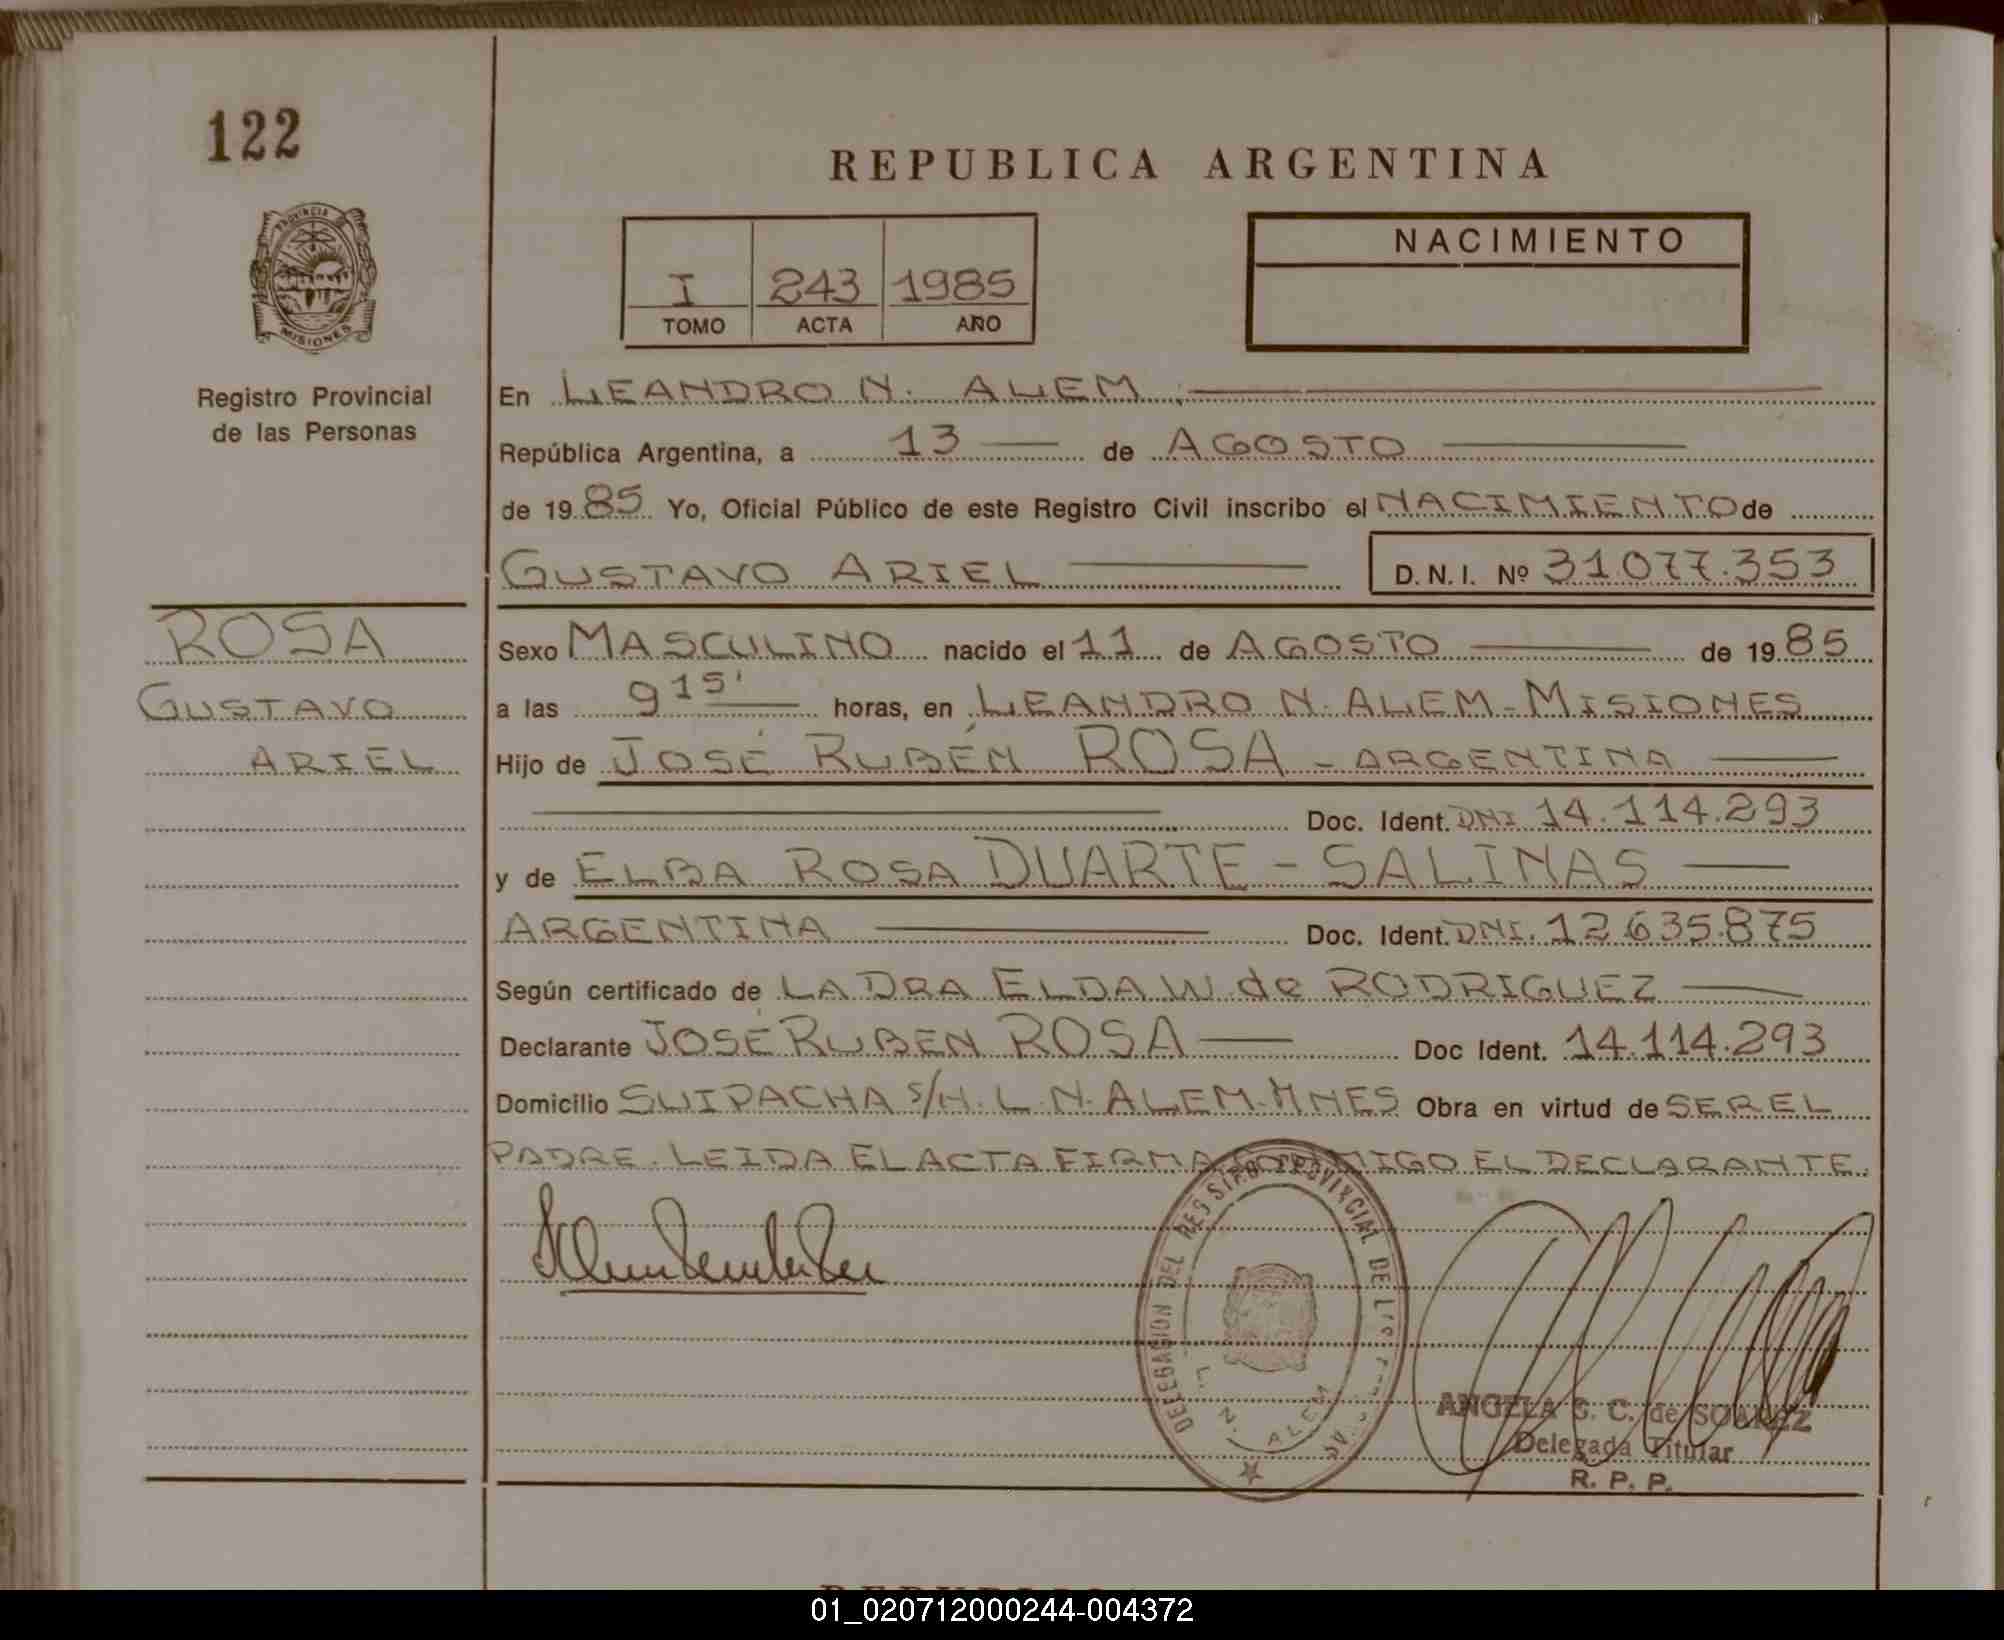 122
REPUBLICA ARGENTINA
PROVINCIA
MISIONES
I 243 1985
TOMO ACTA AÑO
NACIMIENTO
Registro Provincial
de las Personas
En LEANDRO N. ALEM
República Argentina, a 13 de AGOSTO
de 1985 Yo, Oficial Público de este Registro Civil inscribo el NACIMIENTO de
GUSTAVO ARIEL D.N.I. Nº 31.077.353
ROSA
GUSTAVO
ARIEL
Sexo MASCULINO nacido el 11 de AGOSTO de 1985
a las 9 15' horas, en LEANDRO N. ALEM - MISIONES
Hijo de JOSÉ RUBÉN ROSA - ARGENTINA
Doc. Ident. DNI 14.114.293
y de ELBA ROSA DUARTE - SALINAS
ARGENTINA Doc. Ident. DNI. 12.635.875
Según certificado de LA DRA ELDA W. de RODRIGUEZ
Declarante JOSÉ RUBEN ROSA Doc Ident. 14.114.293
Domicilio SUIPACHA S/N. L. N. ALEM. MNES Obra en virtud de SER EL
PADRE. LEIDA EL ACTA FIRMA CONMIGO EL DECLARANTE.
DELEGACION DEL REGISTRO PROVINCIAL DE LAS
L. N. ALEM
ANGELA G. C. de SOAREZ
Delegada Titular
R. P. P.
01_020712000244-004372